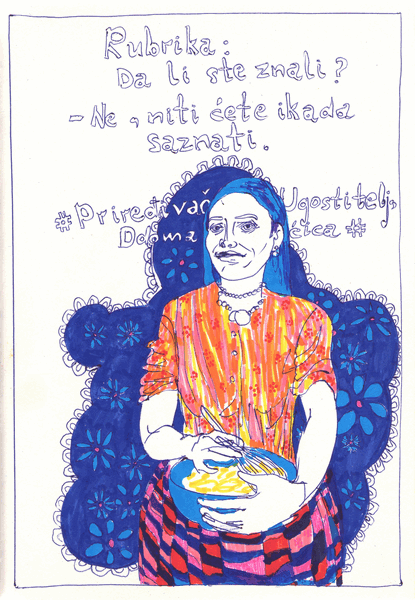 Rubrika:
Da li ste znali?
- Ne, niti ćete ikada
saznati.
#Priređivač Ugostitelj,
Doma ćica#